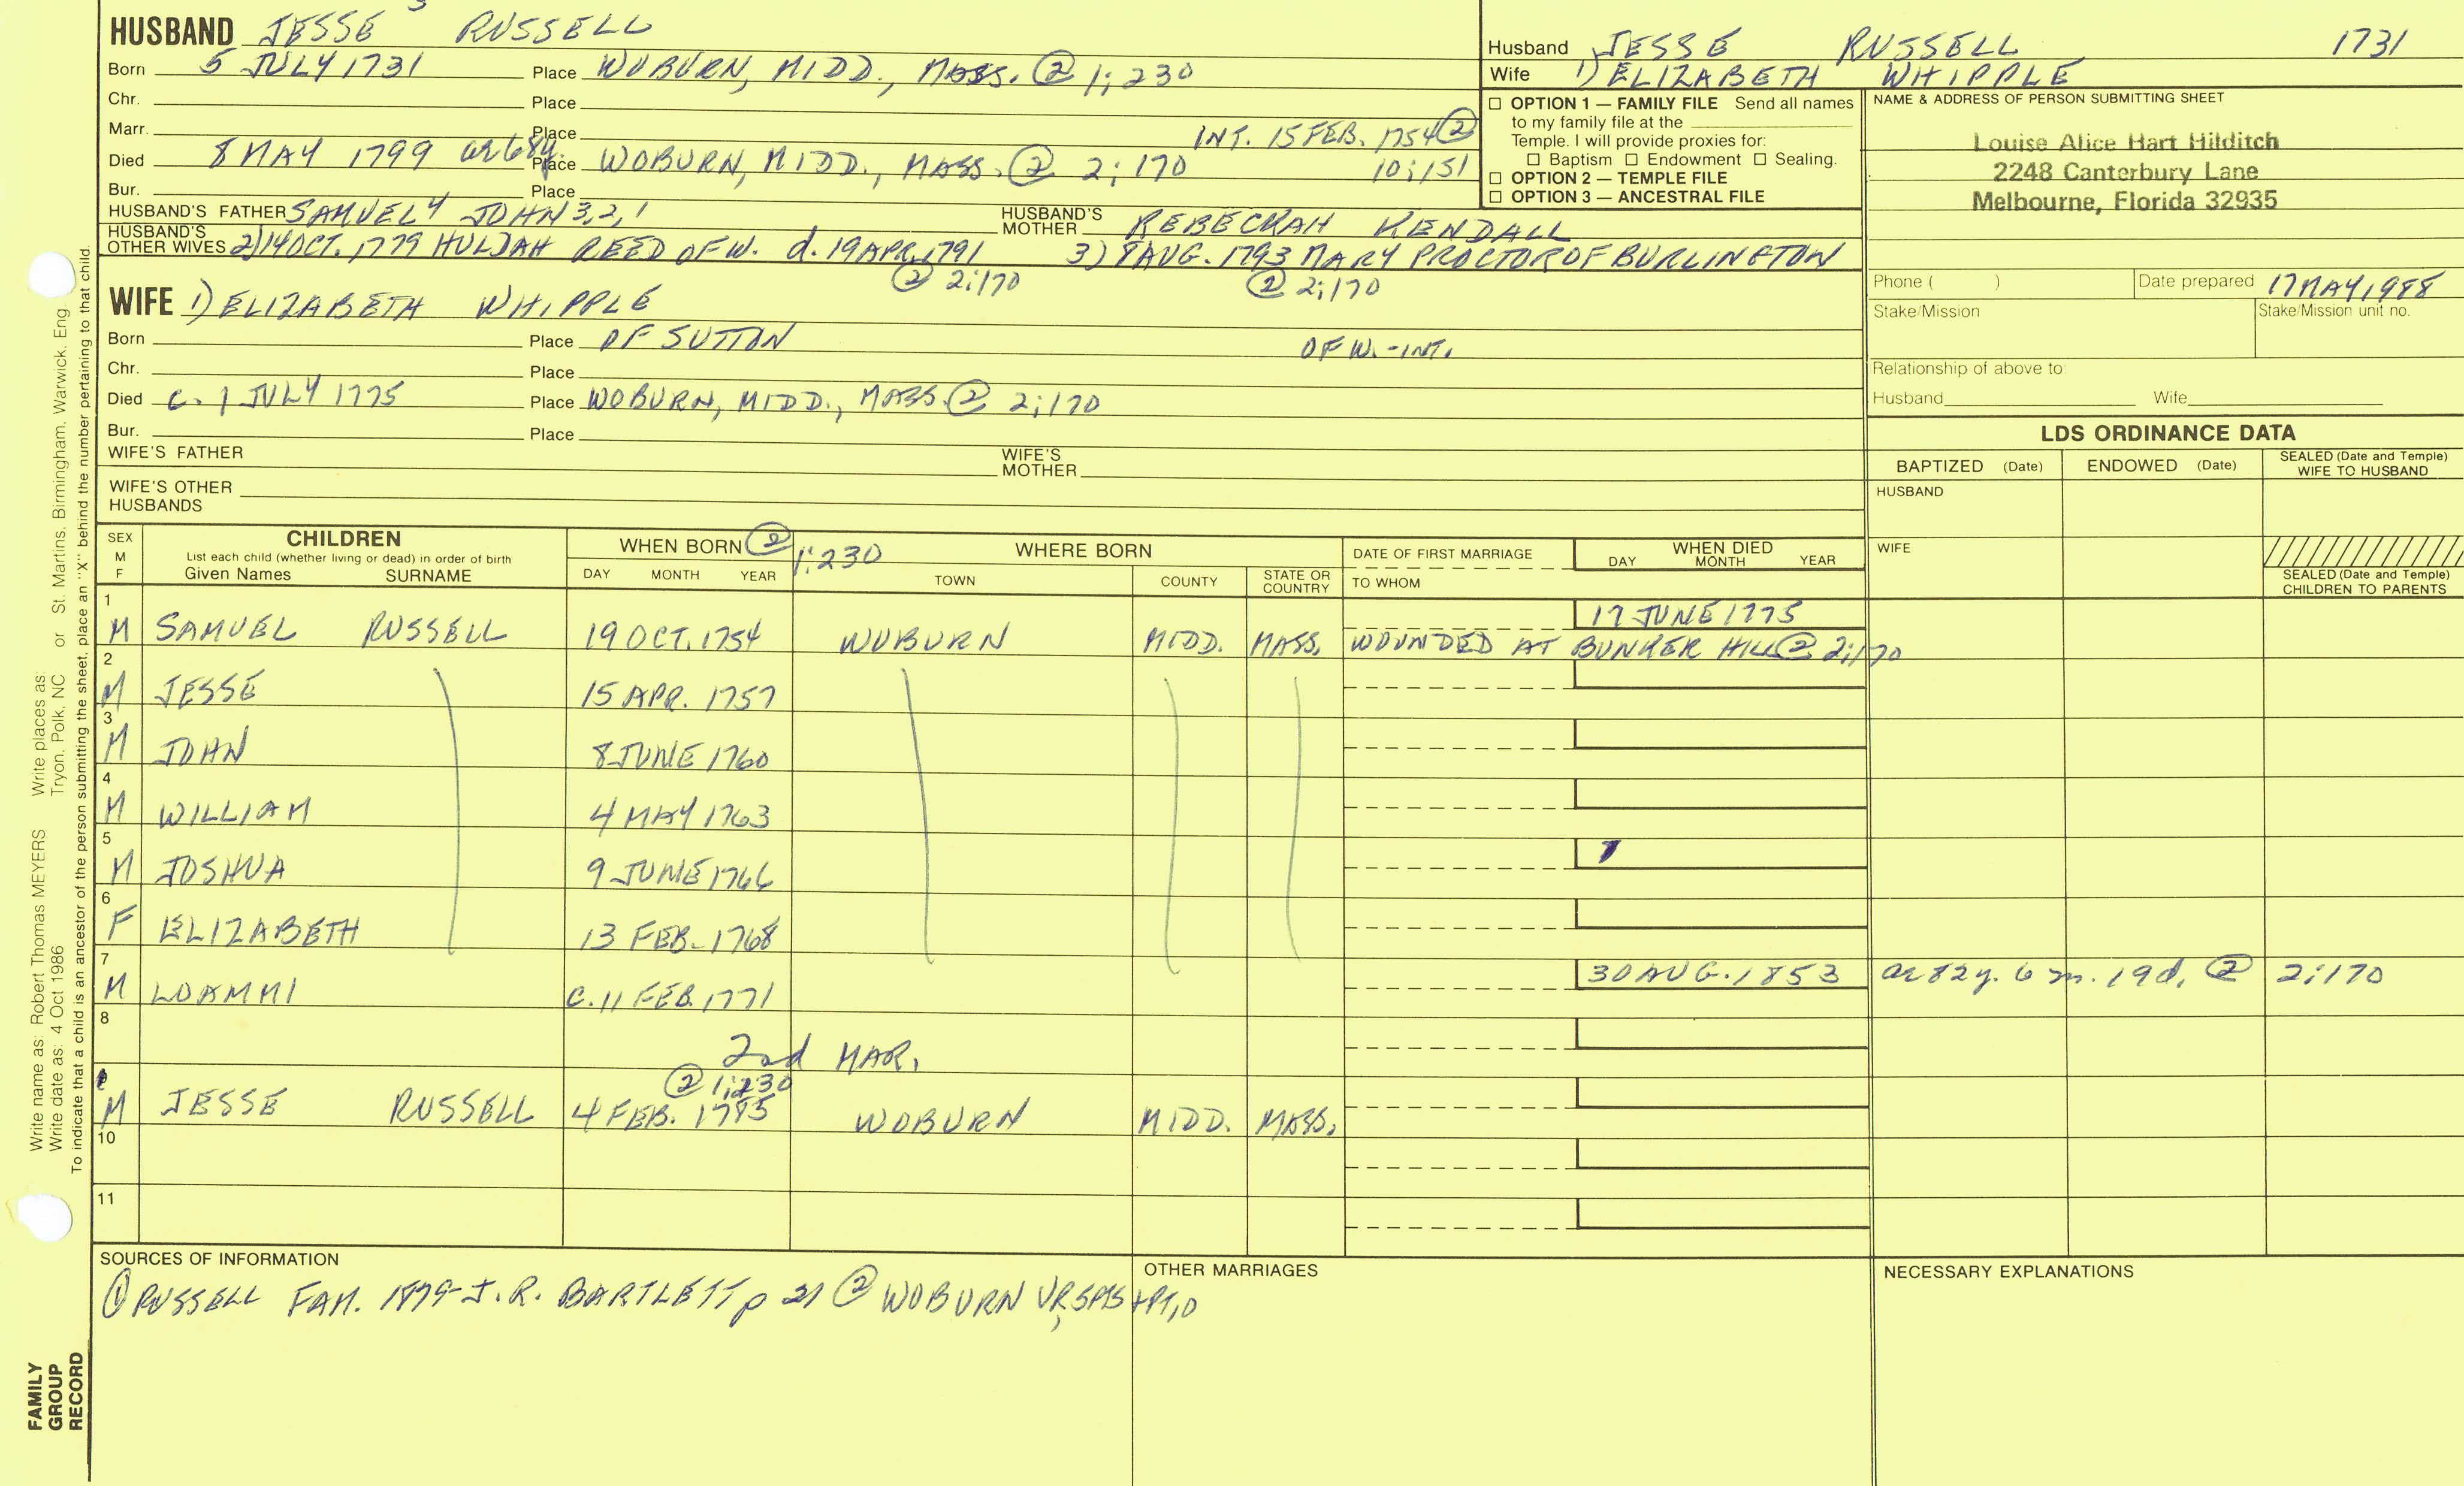 HUSBAND JESSE 5 RUSSELL
Born 5 JULY 1731 Place WOBURN, MIDD., MASS. ② 1;230
Chr. Place
Marr. Place INT. 15 FEB. 1754 ② 10;151
Died 8 MAY 1799 ae 68y. Place WOBURN, MIDD., MASS. ② 2;170
Bur. Place
HUSBAND'S FATHER SAMUEL 4 JOHN 3,2,1 HUSBAND'S MOTHER REBECKAH KENDALL
HUSBAND'S OTHER WIVES 2) 14 OCT. 1779 HULDAH REED OF W. d. 19 APR. 1791 3) 8 AUG. 1793 MARY PROCTOR OF BURLINGTON
② 2;170 ② 2;170
WIFE 1) ELIZABETH WHIPPLE
Born Place OF SUTTON OF W. - INT.
Chr. Place
Died c. 1 JULY 1775 Place WOBURN, MIDD., MASS. ② 2;170
Bur. Place
WIFE'S FATHER WIFE'S MOTHER
WIFE'S OTHER HUSBANDS
Husband JESSE RUSSELL 1731
Wife 1) ELIZABETH WHIPPLE
☐ OPTION 1 — FAMILY FILE Send all names
to my family file at the
Temple. I will provide proxies for:
☐ Baptism ☐ Endowment ☐ Sealing.
☐ OPTION 2 — TEMPLE FILE
☐ OPTION 3 — ANCESTRAL FILE
NAME & ADDRESS OF PERSON SUBMITTING SHEET
Louise Alice Hart Hilditch
2248 Canterbury Lane
Melbourne, Florida 32935
Phone ( ) Date prepared 17 MAY, 1988
Stake/Mission Stake/Mission unit no.
Relationship of above to:
Husband Wife
LDS ORDINANCE DATA
BAPTIZED (Date) ENDOWED (Date) SEALED (Date and Temple) WIFE TO HUSBAND
HUSBAND
WIFE
SEALED (Date and Temple) CHILDREN TO PARENTS
SEX M F CHILDREN
List each child (whether living or dead) in order of birth
Given Names SURNAME
WHEN BORN ② 1;230 WHERE BORN
DAY MONTH YEAR TOWN COUNTY STATE OR COUNTRY
DATE OF FIRST MARRIAGE
TO WHOM
WHEN DIED
DAY MONTH YEAR
1 17 JUNE 1775
M SAMUEL RUSSELL 19 OCT. 1754 WOBURN MIDD. MASS. WOUNDED AT BUNKER HILL ② 2;170
2
M JESSE 15 APR. 1757
3
M JOHN 8 JUNE 1760
4
M WILLIAM 4 MAY 1763
5
M JOSHUA 9 JUNE 1766
6
F ELIZABETH 13 FEB. 1768
7 30 AUG. 1853 ae 82y. 6 m. 19d. ② 2;170
M LOAMMI c. 11 FEB. 1771
8
2nd MAR.
② 1;230
M JESSE RUSSELL 4 FEB. 1785 WOBURN MIDD. MASS.
10
11
SOURCES OF INFORMATION
① RUSSELL FAM. 1879 - J. R. BARTLETT p 21 ② WOBURN VR,
OTHER MARRIAGES
NECESSARY EXPLANATIONS
Write name as: Robert Thomas MEYERS Write places as: St. Martins, Birmingham, Warwick, Eng.
Write date as: 4 Oct 1986 Tryon, Polk, NC or
To indicate that a child is an ancestor of the person submitting the sheet, place an "X" behind the number pertaining to that child.
FAMILY
GROUP
RECORD